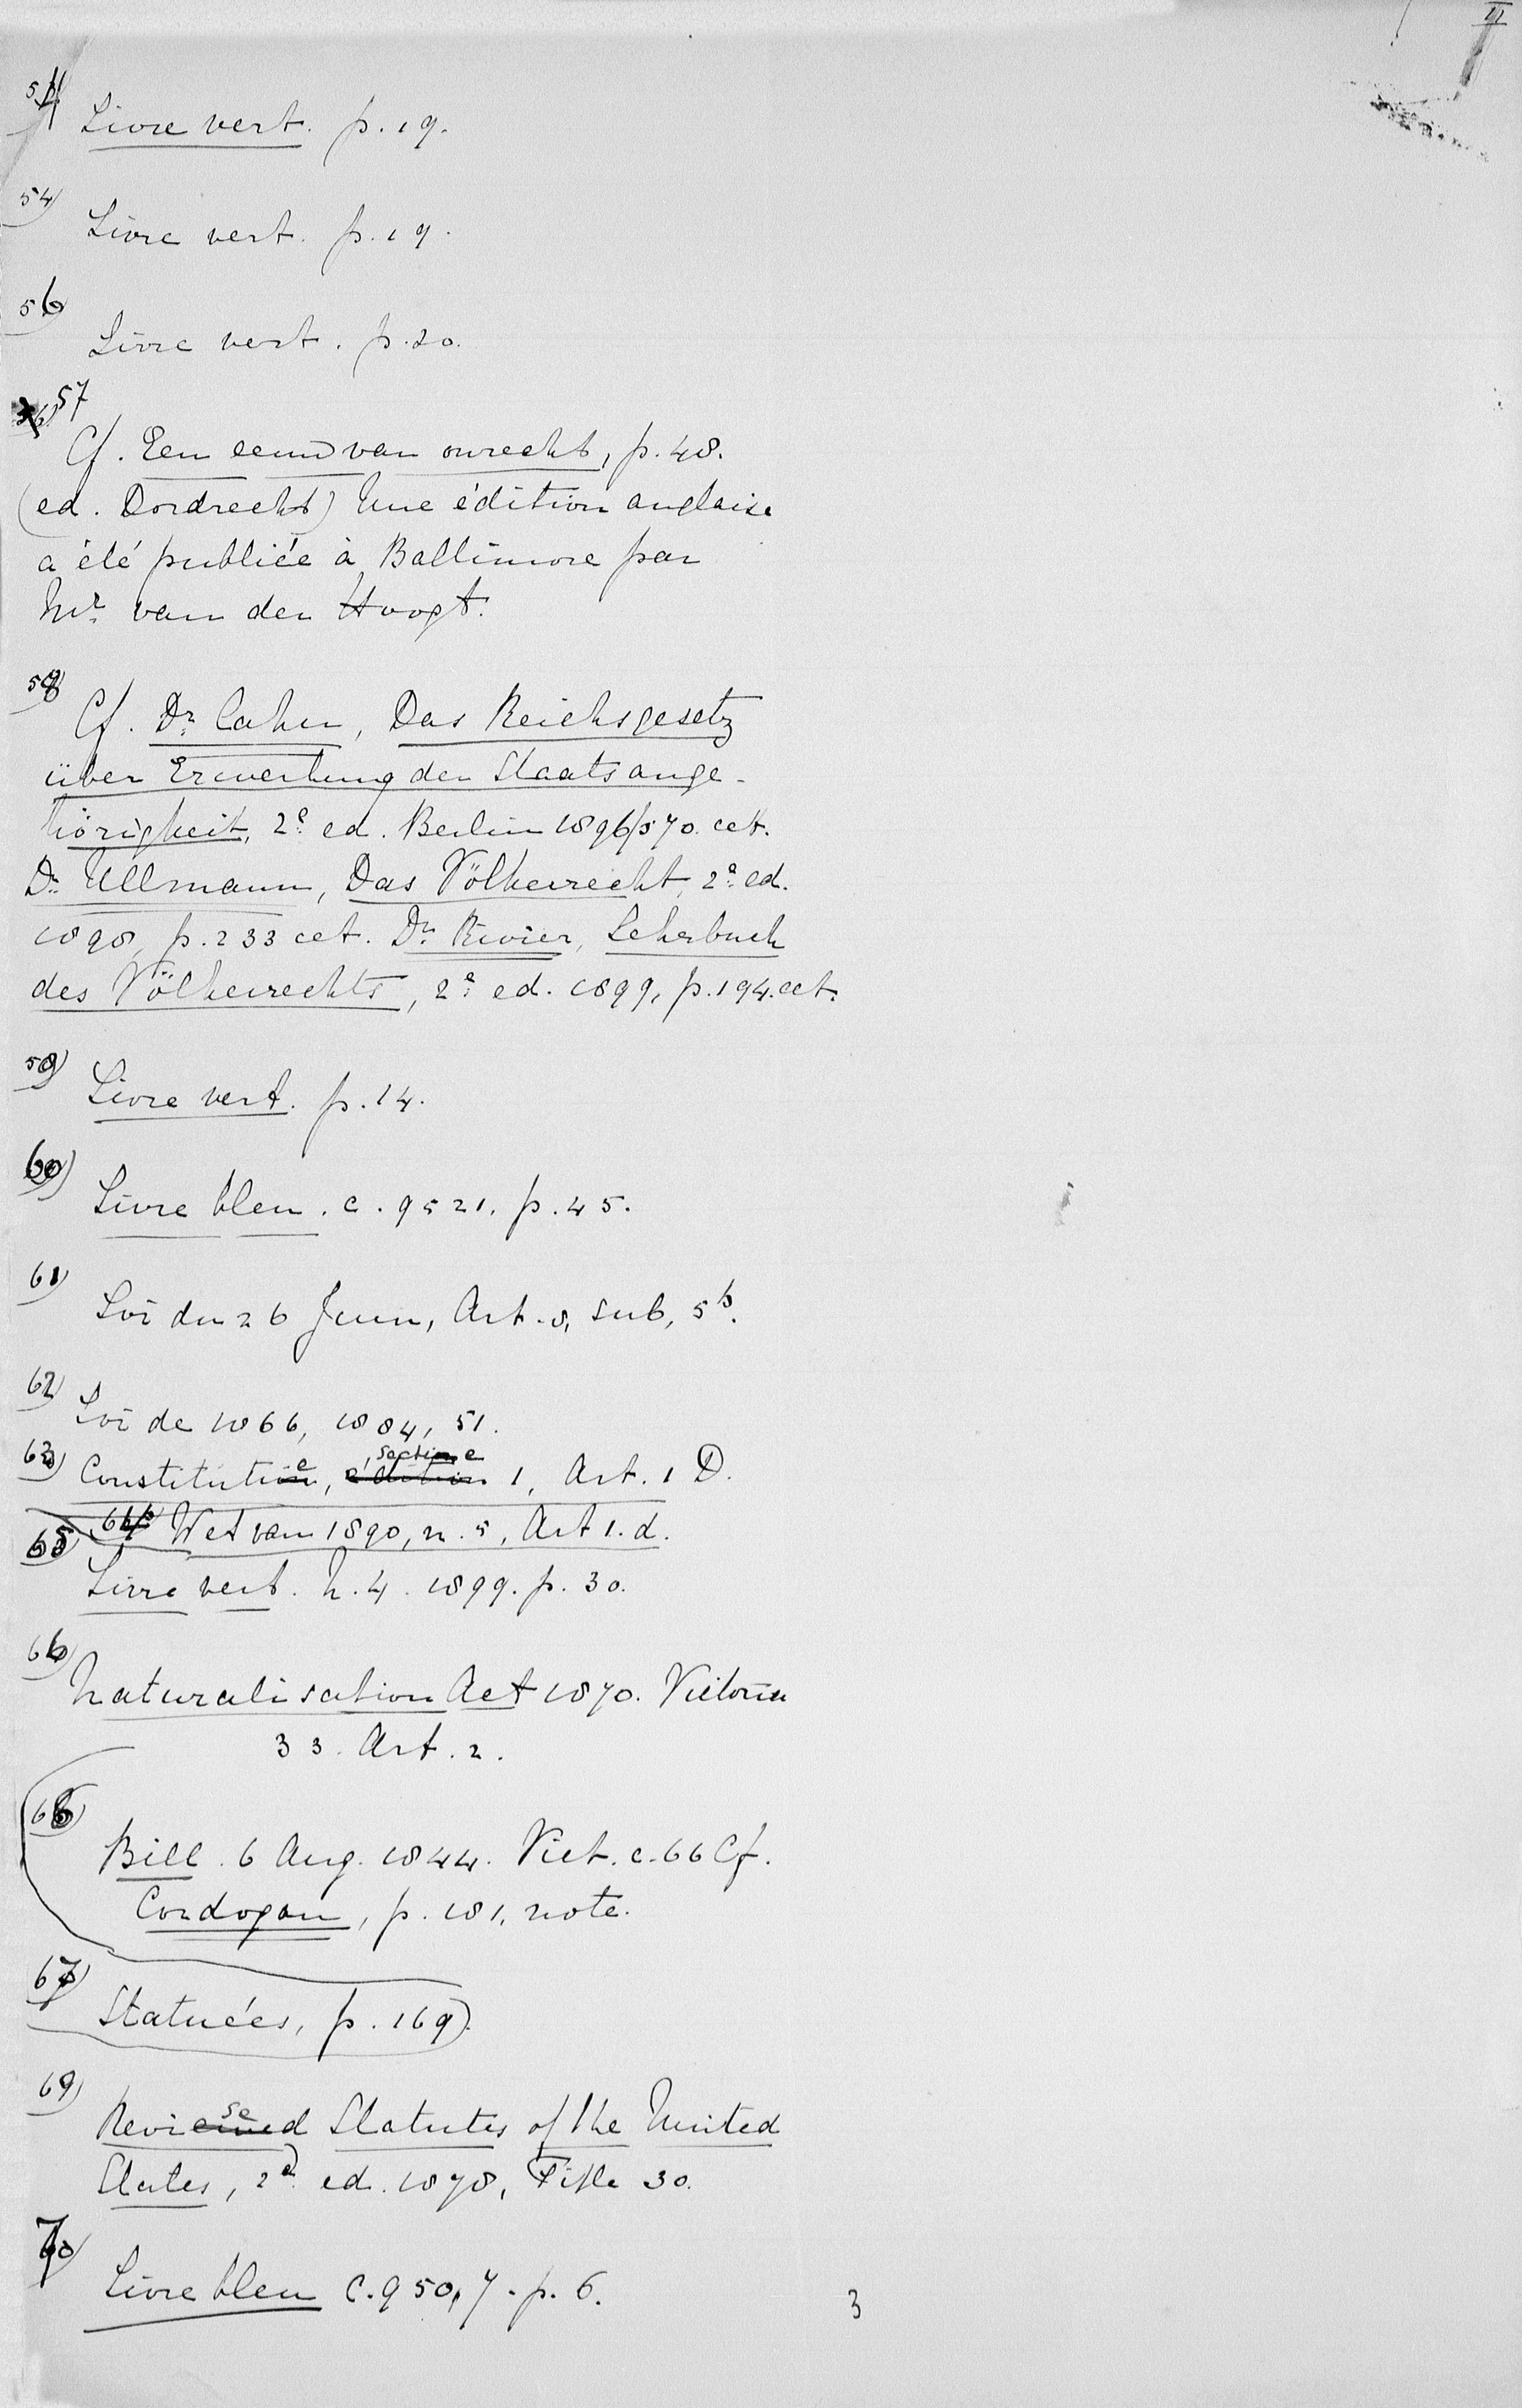 II
54
Livre vert. p. 19.
54)
Livre vert. p. 19.
56)
Livre vert. p. 20.
57
Cf. Een eeuw van onrecht, p. 48.
(ed. Dordrecht) Une édition anglaise
a été publiée à Baltimore par
Mr. van der Hoogt.
58)
Cf. Dr. Cahn, Das Reichsgesetz
über Erwerbung der Staatsange-
hörigkeit, 2e ed. Berlin 1896/570. cet.
Dr. Ullmann, Das Völkerrecht, 2e ed.
1898, p. 233 cet. Dr. Rivier, Lehrbuch
des Völkerrechts, 2e ed. 1899, p. 194. cet.
59)
Livre vert. p. 14.
60)
Livre bleu. c. 9521. p. 45.
61)
Loi du 26 Juin, Art. 8, sub, 5b.
62)
Loi de 1866, 1884, 51.
63) Constitution, section 1, Art. 1 D.
64) Wet van 1890, n. 5, Art 1. d.
65)
Livre vert. N. 4. 1899. p. 30.
66)
Naturalisation Act 1870. Victoria
33. Art. 2.
66)
Bill. 6 Aug. 1844. Vict. c. 66 Cf.
Cordogan, p. 181, note.
67)
Statuées, p. 169).
69)
Revised Statutes of the United
States, 2d ed. 1878, Title 30.
70)
Livre bleu C. 950,7. p. 6.
3